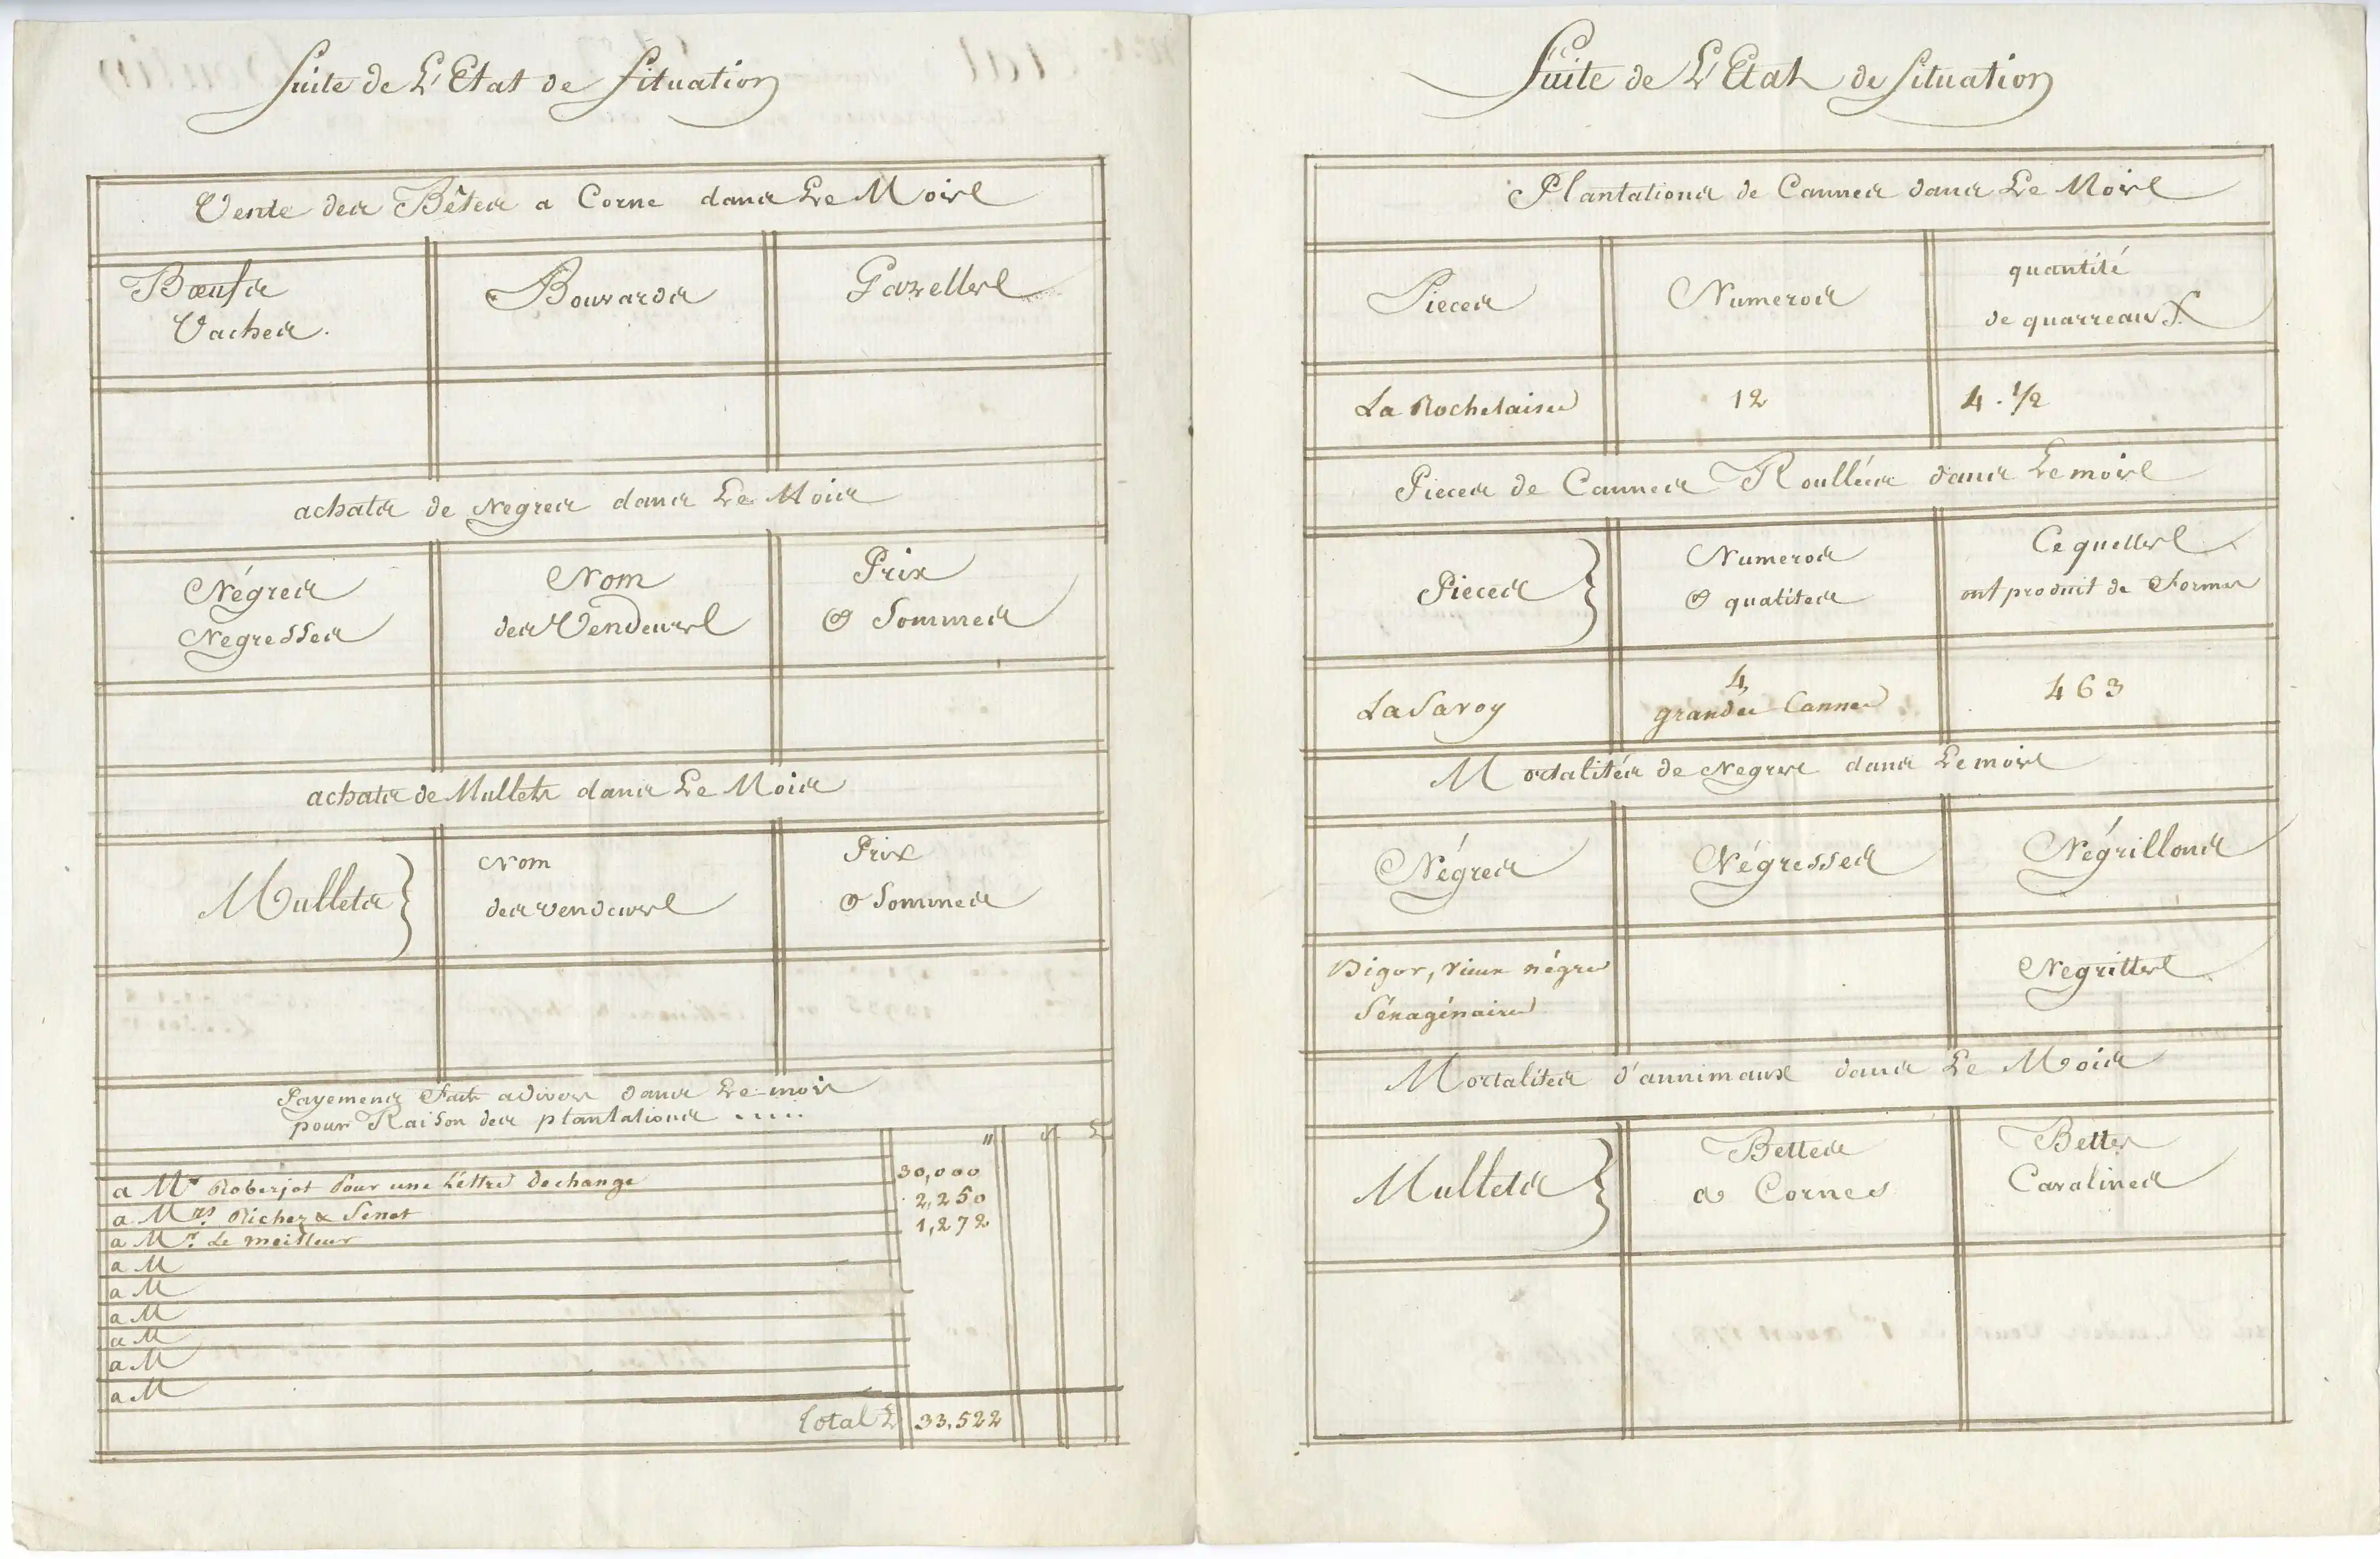 Suite de L'Etat de Situation
Vente des Bêtes a Corne dans Le Mois
Bœufs
Vaches.
Bouvards
Gazelles
achats de Negres dans Le Mois
Négres
Negresses
Nom
des Vendeurs
Prix
& Sommes
achats de Mullets dans Le Mois
Mullets
Nom
des vendeurs
Prix
& Sommes
Payemens Faits a divers dans Le mois
pour Raison des plantations .....
" s L
a Mr Roberjot Pour une Lèttre dechange 30,000
a Mrs. Richer & Senet 2,250
a Mr. Le meilleur 1,272
a M
a M
a M
a M
a M
a M
Total L 33,522
Suite de L'Etat de Situation
Plantations de Cannes dans Le Mois
Pieces
Numeros
quantité
de quarreaux
La Rochelaise 12 4 . 1/2
Pieces de Cannes Roullées dans Le mois
Pieces
Numeros
& qualites
Ce quelles
ont produit de Formes
La Savoy
4
grandes Cannes
463
Mortalités de Negres dans Le mois
Négres
Négresses
Négrillons
Bigor, vieux négre
Séxagénaire
Negrittes
Mortalites d'annimaux dans Le Mois
Mullets
Bettes
a Cornes
Bettes
Cavalines